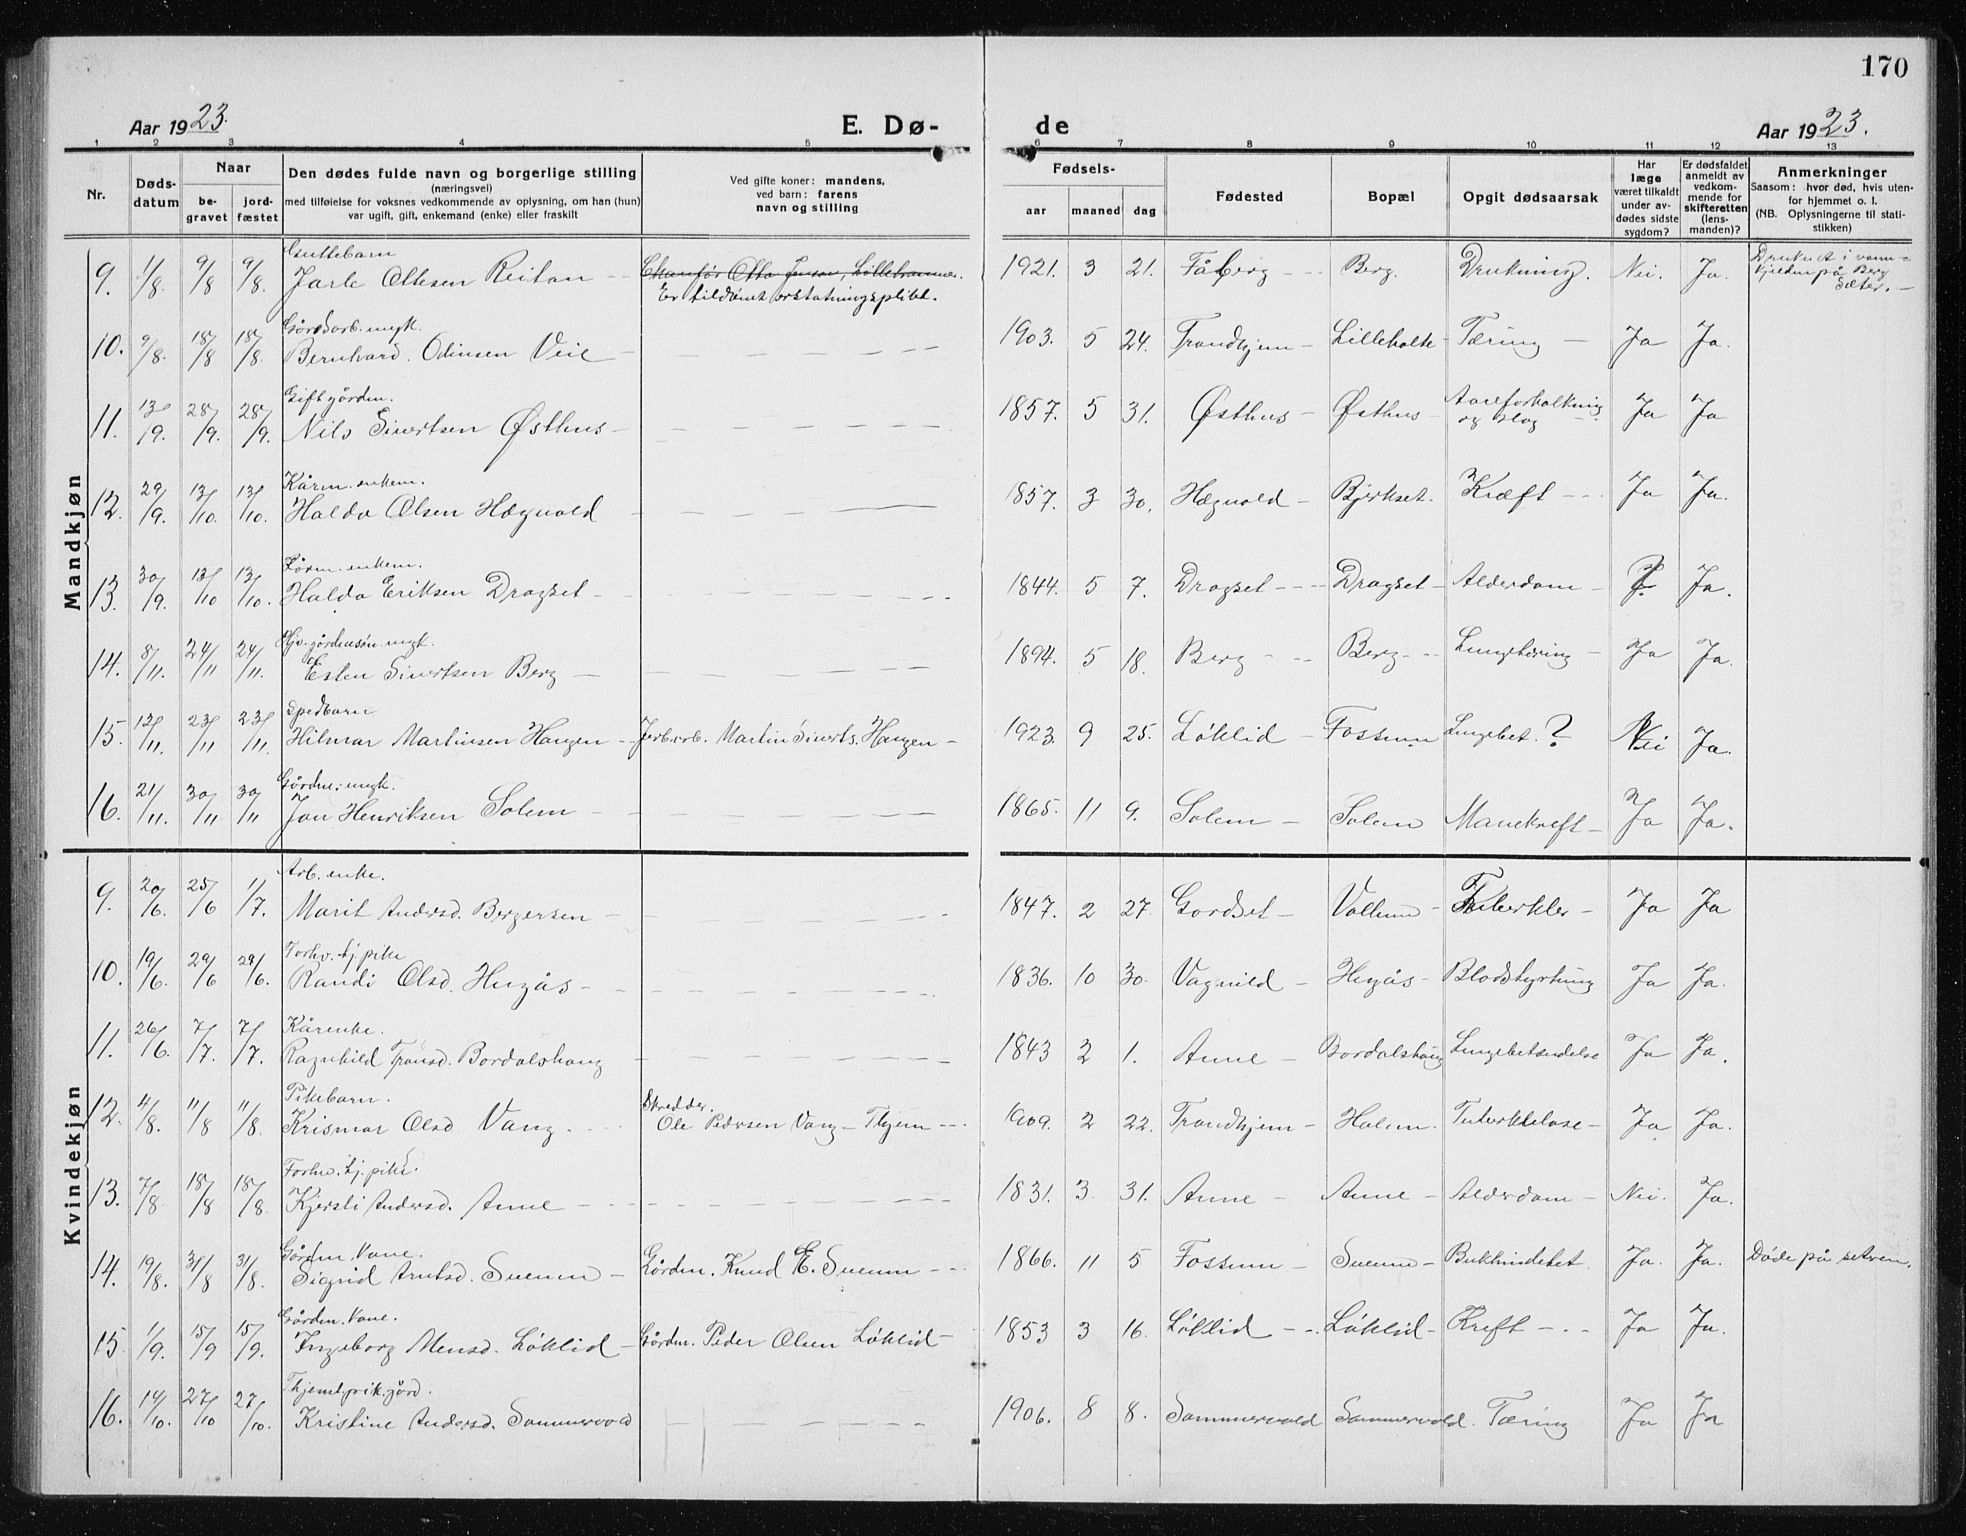 170
Aar 1923.
E. Dø-
de
Aar 1923.
1 2 3 4 5 6 7 8 9 10 11 12 13
Nr.
Døds-
datum
Naar
be-
gravet
jord-
fæstet
Den dødes fulde navn og borgerlige stilling
(næringsvei)
med tilføielse for voksnes vedkommende av oplysning, om han (hun)
var ugift, gift, enkemand (enke) eller fraskilt
Ved gifte koner: mandens,
ved barn: farens
navn og stilling
Fødsels-
aar maaned dag
Fødested
Bopæl
Opgit dødsaarsak
Har
læge
været tilkaldt
under av-
dødes sidste
sygdom?
Er dødsfaldet
anmeldt av
vedkom-
mende for
skifteretten
(lens-
manden)?
Anmerkninger
Saasom: hvor død, hvis uten-
for hjemmet o. l.
(NB. Oplysningerne til stati-
stikken)
Mandkjøn
Guttebarn
9. 1/8. 9/8 9/8. Jarle Ottesen Reitan Otto Jensen, Lillehammer.
Er tildömt erstatningsplikt.
1921. 3 21. Fåberg Berg. Drukning. Nei. Ja. Druknet i vann-
kjelden på Berg
Sæter.
10. 9/8. 18/8 18/8. ugk.
Bernhard Odinsen Veie 1903. 5 24. Trondhjem Lilleholte Tæring Ja Ja.
Gift gården.
11. 13/9. 28/9. 28/9. Nils Sivertsen Østhus 1857. 5 31. Østhus Østhus Aareforkalkning
og slag Ja Ja
Kårm. enkem.
12. 29/9. 13/10 13/10. Haldo Olsen Hægvold 1857. 3 30. Hægvold Bjerkset. Kræft Ja Ja.
Kårm. enkem.
13. 30/9. 13/10 13/10. Haldo Eriksen Dragset 1844. 5 7. Dragset Dragset Alderdom Ja.
ugk.
14. 8/11. 24/11 24/11. Esten Sivertsen Berg 1894. 5 18. Berg Berg Lungetæring Ja Ja.
Spedbarn
15. 12/11. 23/11 23/11. Hilmar Martinsen Haugen Jerb.arb. Martin Siverts. Haugen 1923. 9 25. Løklid Fossum Lungebet. ? Nei Ja.
Gårdm; ungk.
16. 21/11. 30/11 30/11 Jon Henriksen Solem 1865. 11 9. Solem Solem Mavekreft Ja Ja.
Kvindekjøn
Arb. enke.
9. 20/6. 25/6 1/7. Marit Andersd. Bergersen 1847. 2 27. Gordset Vollum Tuberkler Ja Ja
Forhv. tj. pike
10. 19/6. 29/6 29/6. Randi Olsd. Hugås 1836. 10 30. Vagnild Hugås Blodstyrtning Ja Ja.
Kårenke.
11. 26/6. 7/7. 7/7. Ragnhild Tronsd. Bordalshaug 1843 2 1. Aune Bordalshaug Lungebetændelse Ja Ja.
Pikebarn.
12. 4/8. 11/8 11/8. Krismar Olsd Vang. Skredder.
Ole Pedersen Vang Thjem 1909. 2 22. Trondhjem Holem. Tuberkulose Ja Ja.
Forhv. tj. pike.
13. 7/8. 18/8 18/8. Kjersti Andersd. Aune 1831. 3. 31. Aune Aune Alderdom Nei. Ja.
Gårdm. kone.
14. 19/8. 31/8 31/8. Sigrid Arntsd. Suenun Gårdm. Knud E. Suenun 1866. 11 5 Fossum Suenun Bukhindebet. Ja. Ja. Döde på setren.
Gårdm. kone.
15. 1/9. 15/9 15/9. Ingeborg Monsd. Løklid Gårdm. Peder Olsen Løklid 1853 3 16. Løklid Løklid Kreft Ja Ja.
16. 14/10. 27/10 27/10. Kristine Andersd. Sommervold 1906. 8 8. Sommervold Sommervold. Tæring Ja Ja